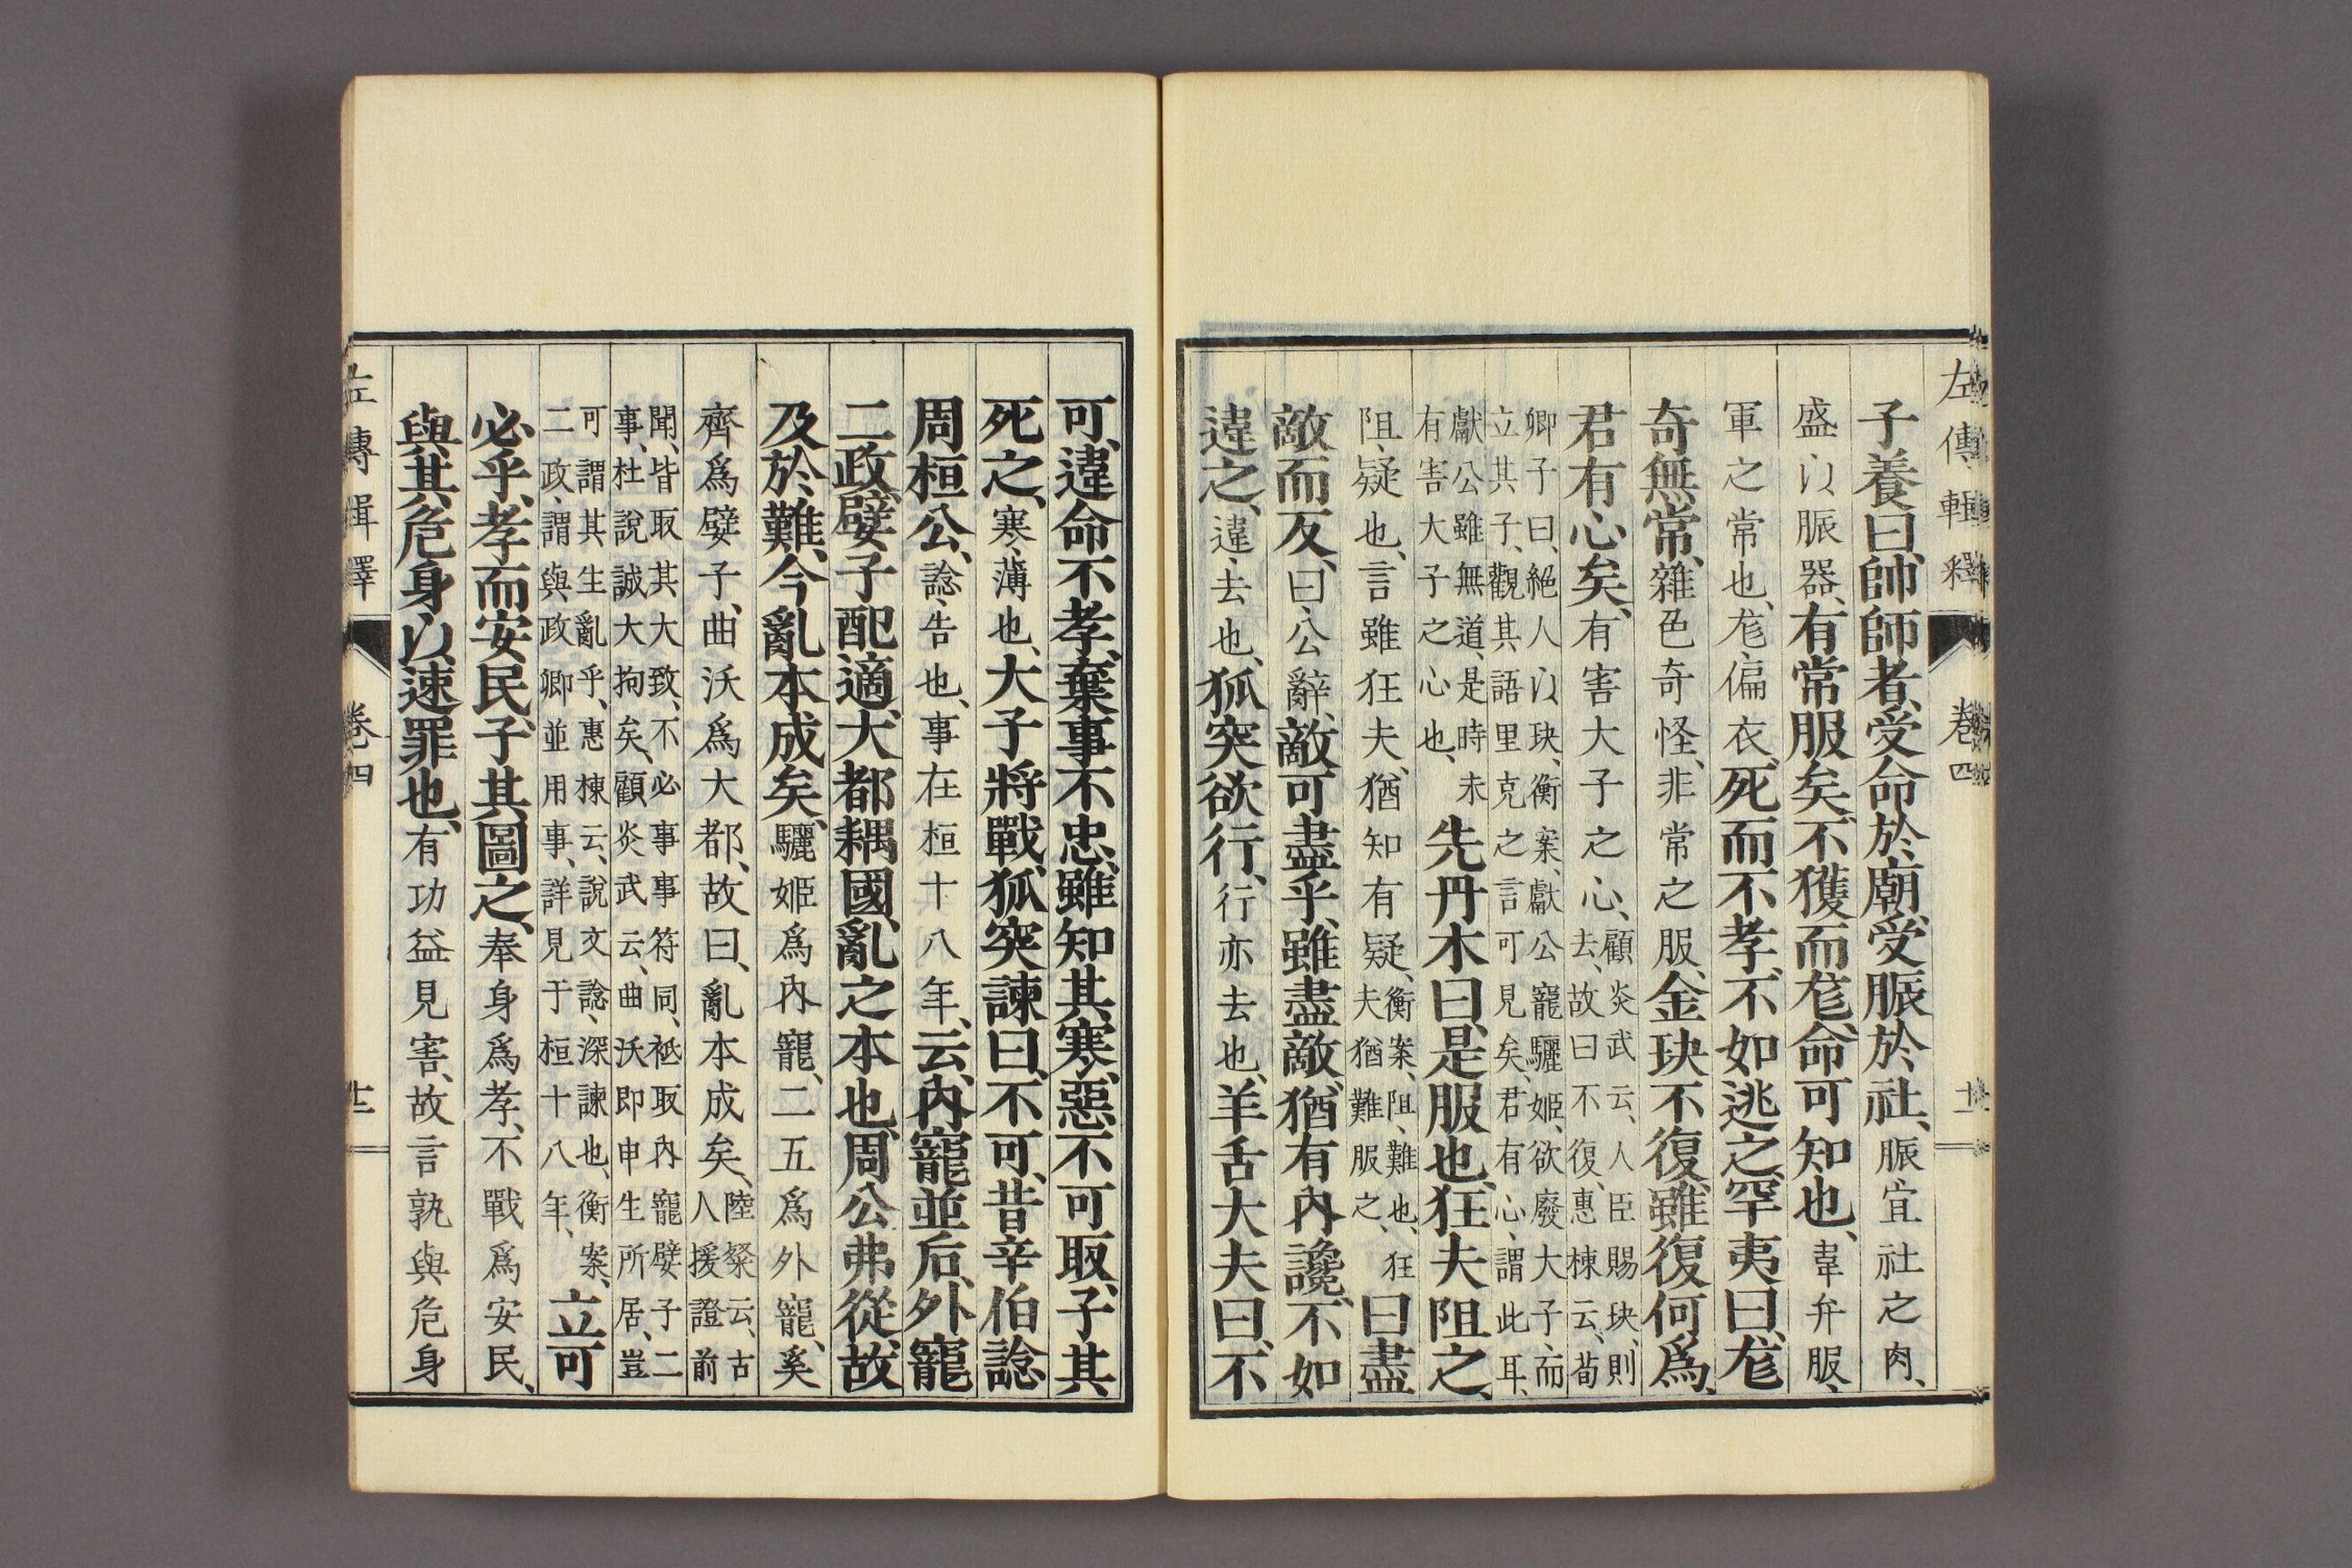 左傳輯釋 卷四 十一
子養曰、帥師者、受命於廟、受脤於社、脤宜社之肉、
盛以脤器、有常服矣、不獲而尨、命可知也、韋弁服、
軍之常也、尨、偏衣、死而不孝、不如逃之、罕夷曰、尨
奇無常、雜色奇怪、非常之服、金玦不復、雖復何爲、
君有心矣、有害大子之心、顧炎武云、人臣賜玦、則
去、故曰不復、惠棟云、荀
卿子曰、絕人以玦、衡案、獻公寵驪姬、欲廢大子、而
立其子、觀其語里克之言可見矣、君有心、謂此耳、
獻公雖無道、是時未
有害大子之心也、
先丹木曰、是服也、狂夫阻之、
阻、疑也、言雖狂夫、猶知有疑、衡案、阻、難也、狂
夫猶難服之、
曰盡
敵而反、曰、公辭、敵可盡乎、雖盡敵、猶有內讒、不如
違之、違、去也、狐突欲行、行亦去也、羊舌大夫曰、不
可、違命不孝、棄事不忠、雖知其寒、惡不可取、子其
死之、寒、薄也、大子將戰、狐突諫曰、不可、昔辛伯諗
周桓公、諗、告也、事在桓十八年、云、內寵並后、外寵
二政、嬖子配適、大都耦國、亂之本也、周公弗從、故
及於難、今亂本成矣、驪姬爲內寵、二五爲外寵、奚
齊爲嬖子、曲沃爲大都、故曰、亂本成矣、陸粲云、古
人援證前
聞、皆取其大致、不必事事符同、祗取內寵嬖子二
事、杜說誠大拘矣、顧炎武云、曲沃卽申生所居、豈
可謂其生亂乎、惠棟云、說文諗、深諫也、衡案、
二政、謂與政卿並用事、詳見于桓十八年、
立可
必乎、孝而安民、子其圖之、奉身爲孝、不戰爲安民、
與其危身以速罪也、有功益見害、故言孰與危身
左傳輯釋 卷四 十二